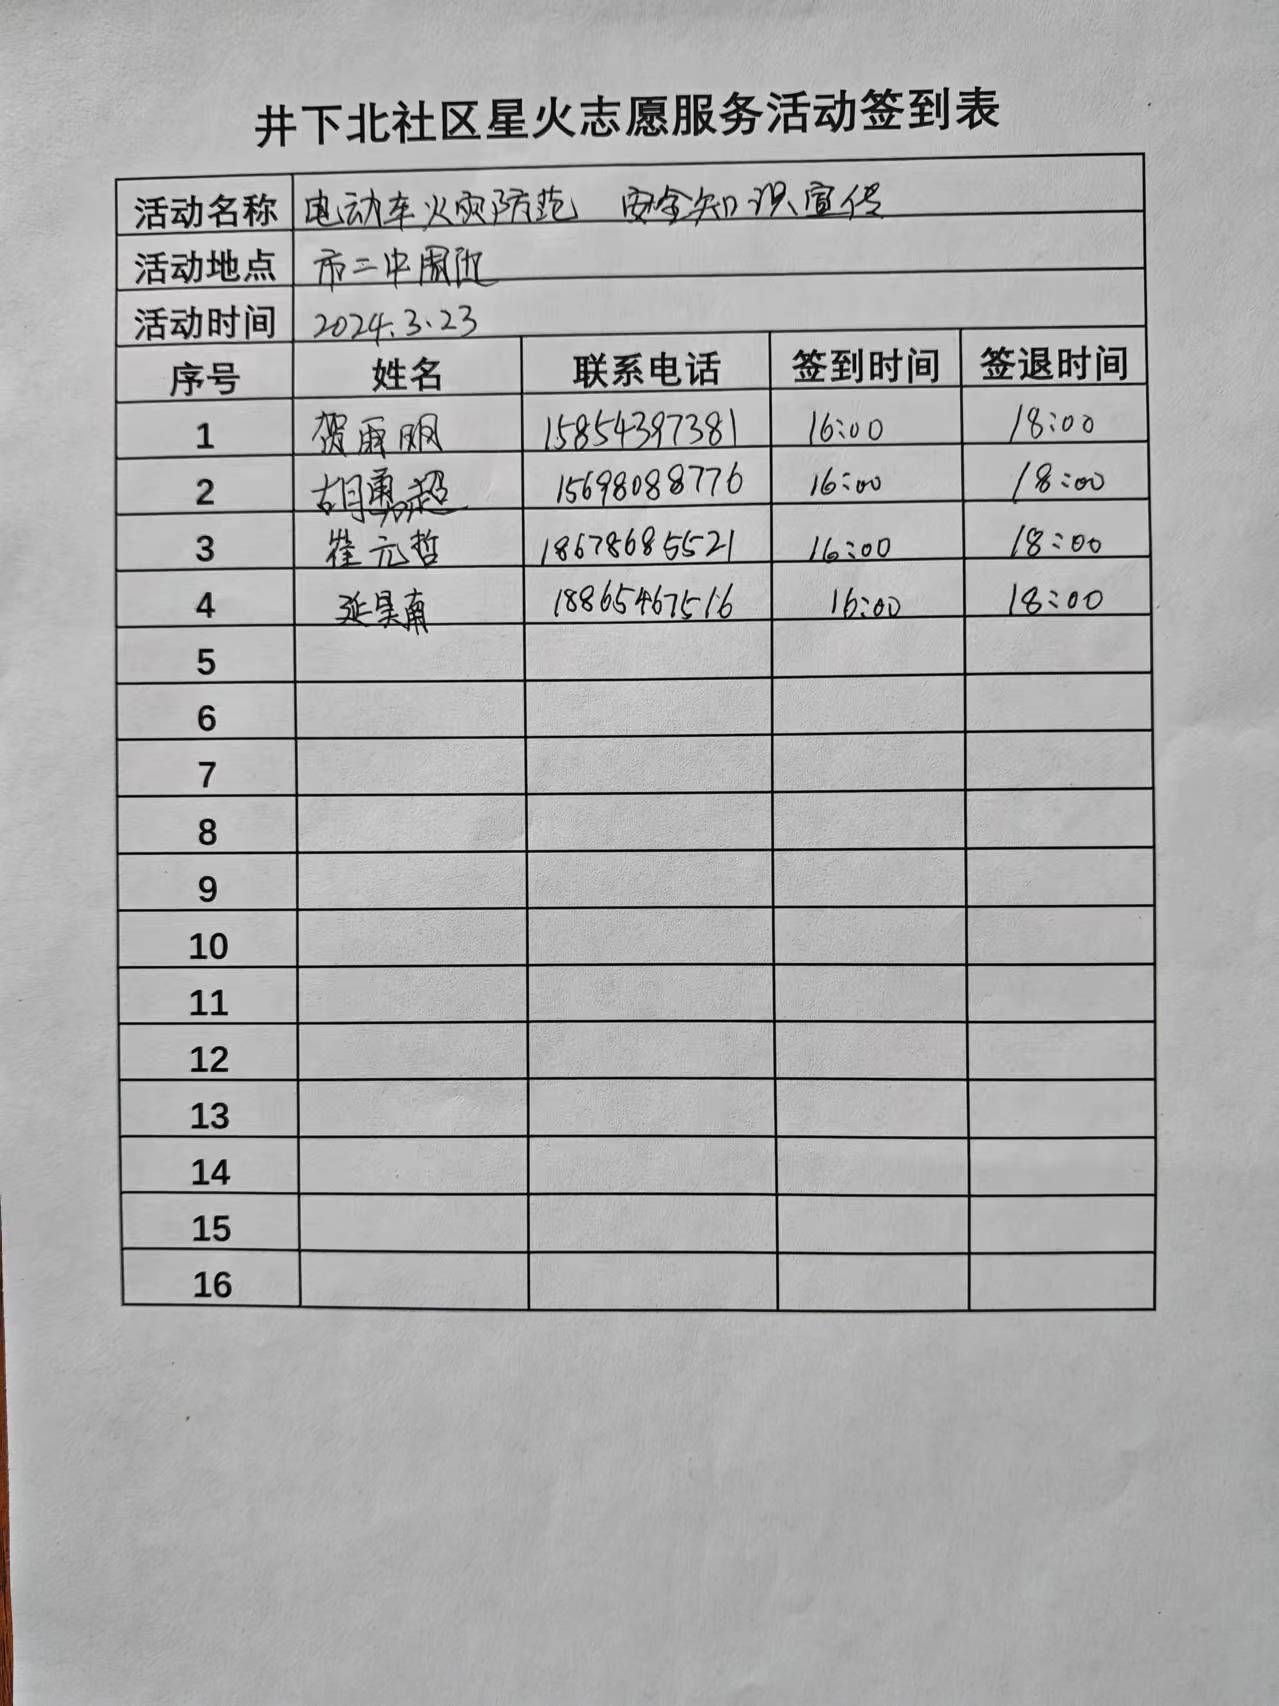 井下北社区星火志愿服务活动签到表
活动名称 电动车火灾防范 安全知识宣传
活动地点 市二中周边
活动时间 2024.3.23
序号 姓名 联系电话 签到时间 签退时间
1 贺 15854397381 16:00 18:00
2 胡勇超 15698088776 16:00 18:00
3 崔元哲 18678685521 16:00 18:00
4 延昊甫 18865467516 16:00 18:00
5
6
7
8
9
10
11
12
13
14
15
16